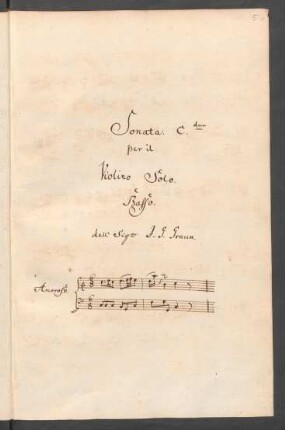 Sonata. C. dur
per il
Violino Solo.
e
Basso.
dell Sigr J. G. Graun.
Amoroso